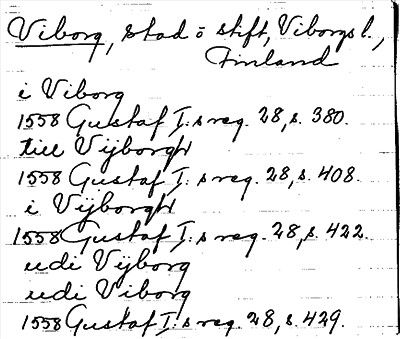 Viborg, stad o stift, Viborgs l.,
Finland
i Viborg
1558 Gustaf I:s reg. 28, s. 380.
till Vijborgh
1558 Gustaf I:s reg. 28, s. 408.
i Vijborgh
1558 Gustaf I:s reg. 28, s. 422.
udi Vijborg
udi Viborg
1558 Gustaf I:s reg. 28, s. 429.